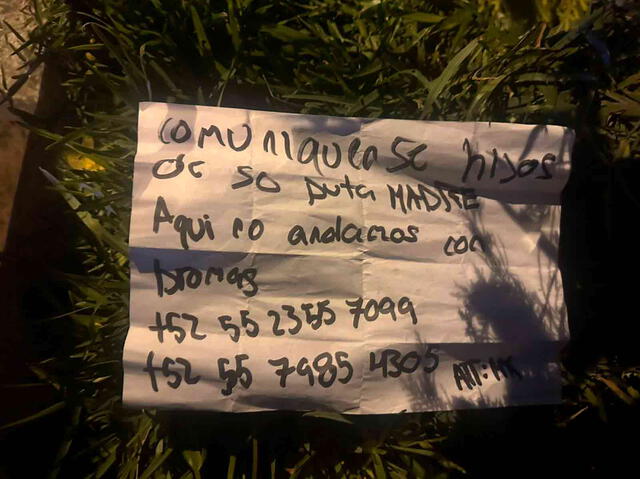 comuniquense hijos
de so puta MADRE
Aqui no andamos con
bromas
+52 55 2355 7099
+52 55 7985 4305 ATT: